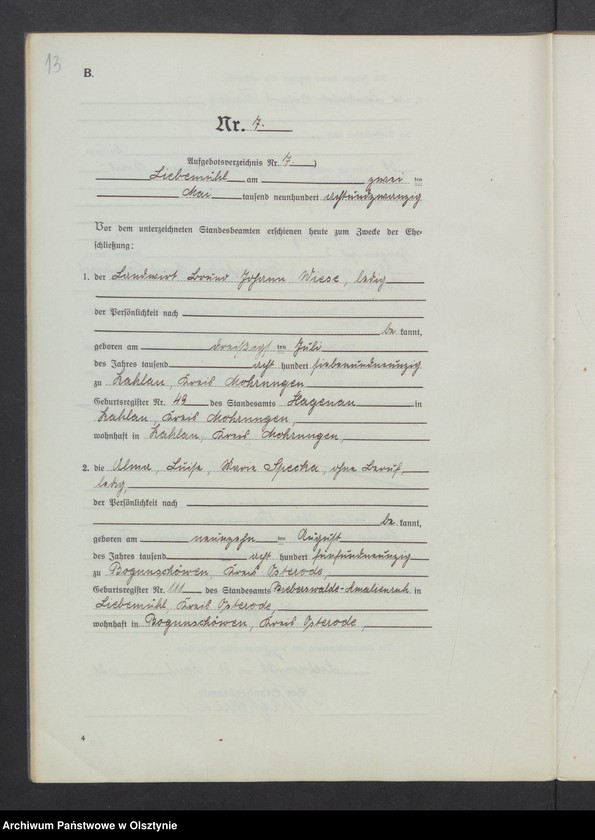 13
B.
Nr. 7.
Aufgebotsverzeichnis Nr. 7.)
Liebemühl am zwei ten
Mai tausend neunhundert achtundzwanzig
Vor dem unterzeichneten Standesbeamten erschienen heute zum Zwecke der Ehe-
schließung:
1. der Landwirt Bruno Johann Wiese, ledig
der Persönlichkeit nach
be kannt,
geboren am dreißigsten Juli
des Jahres tausend acht hundert siebenundneunzig
zu Kahlau, Kreis Mohrungen
Geburtsregister Nr. 49 des Standesamts Hagenau in
Kahlau, Kreis Mohrungen,
wohnhaft in Kahlau, Kreis Mohrungen,
2. die Alma, Luise, Marie Specka, ohne Beruf,
ledig,
der Persönlichkeit nach
be kannt,
geboren am neunzehn ten August
des Jahres tausend acht hundert fünfundneunzig
zu Bogunschöwen, Kreis Osterode,
Geburtsregister Nr. 111 des Standesamts Bieberswalde-Amalienruh in
Liebemühl, Kreis Osterode,
wohnhaft in Bogunschöwen, Kreis Osterode,
4
Archiwum Państwowe w Olsztynie